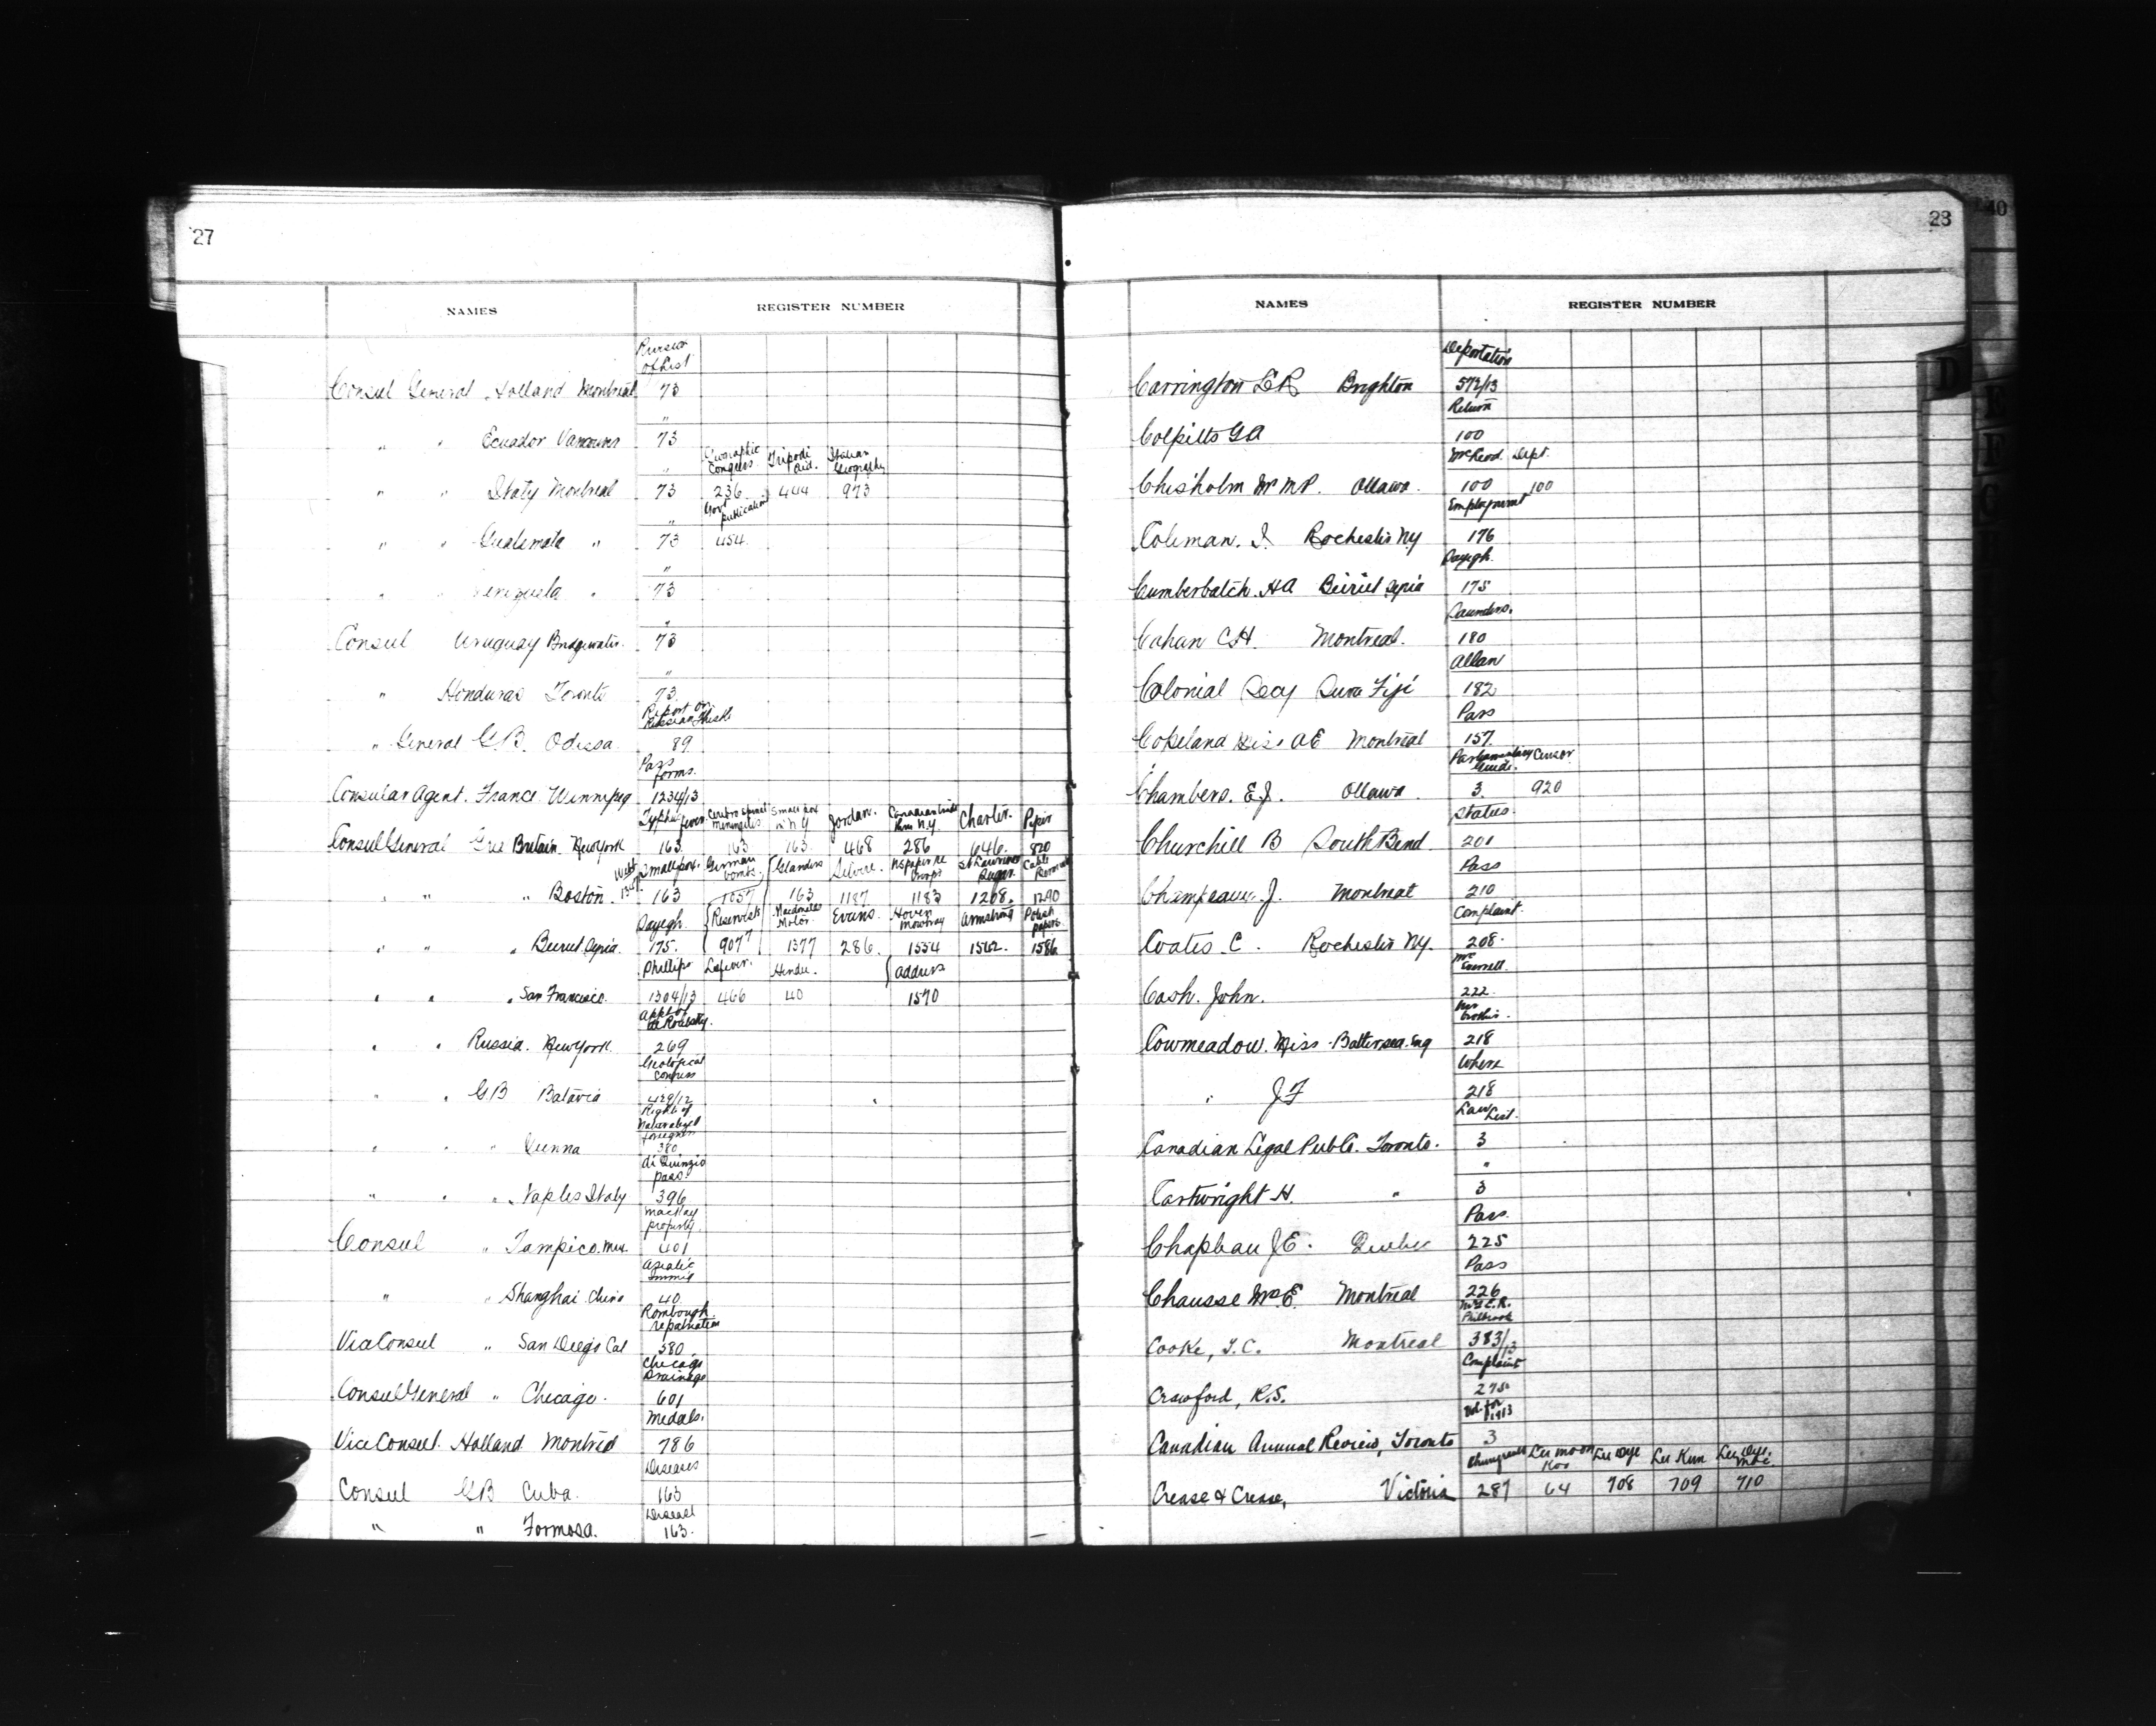 27
NAMES REGISTER NUMBER
of List
Consul General Holland Montreal 73
" " Ecuador Vancouver 73
" Geographic Congress Tripodi Aid. Italian Geography
" " Italy Montreal 73 236 444 973
" Govt publications
" " Guatemala " 73 454
"
" " Venezuela " 73
"
Consul Uruguay Bridgewater 73
"
" Honduras Toronto 73
Report on Russian
" General G.B. Odessa 89
Pass forms.
Consular Agent. France Winnipeg 1234/13
fever. Cerebro spinal meningitis Small pox in N Y Jordan. Charter.
Consul General Great Britain New York 163 163 163 468 286 646 820
Smallpox. German bombs. Glanders St Lawrence Sugar. Cable
" " " Boston. 163 1057 163 1187 1183 1268. 1290
Dayegh. Reservists Macdonald Motor. Evans. Armstrong Polish papers
" " " Beirut Syria. 175. 907 1377 286. 1554 1562. 1586
Phillips Hindu. Address
" " " San Francisco. 1304/13 466 40 1570
" " Russia. New York. 269
Geological Congress
" " GB Batavia 429/12
Right of Naturalized foreigners
" " " 380
di Quinzio pass.
" " " Naples Italy 396
MacKay property.
Consul " Tampico. Mex. 401
Asiatic Immig
" " Shanghai China 40
Rombough. repatriation
Vice Consul " San Diego Cal 580
Chicago Drainage
Consul General " Chicago. 601
Medals.
Vice Consul. Holland Montreal 786
Diseases
Consul GB Cuba. 163
Diseases
" " Formosa. 163.
28
40
NAMES REGISTER NUMBER
D
E
F
G
Deportation
Carrington Brighton 572/13
Return
Colpitts G A 100
McLeod. Dept.
Chisholm Mr M.P. Ottawa. 100 100
Employment
Coleman. I. Rochester NY 176
Dayegh.
Cumberbatch. H A Beirut Syria 175
Saunders.
Cahan C H. Montreal. 180
Allan
Colonial Secy Suva Fiji 182
Pass
Copeland Miss A E Montreal 157.
Parliamentary Guide. Censor
Chambers. E. J. Ottawa. 3. 920
Status.
Churchill B South Bend. 201
Pass
Champeaux. J. Montreal 210
Complaint.
Coates. C. Rochester NY. 208.
Cash. John. 222.
Cowmeadow. Miss Battersea. Eng 218
Where
" J F 218
Law List.
Canadian Legal Publ. Toronto. 3
"
Cartwright H. " 3
Pass.
Chapleau J E. Quebec 225
Pass
Chausse Montreal 226
Mrs E. R. Philbrook
Cooke, T. C. Montreal 383/13
Complaint
Crawford, R. S. 275.
Vol. for 1913
Canadian Annual Review, Toronto 3
Lee Moon Koo Lee Dye Lee Kum
Crease & Crease, Victoria 287 64 708 709 710